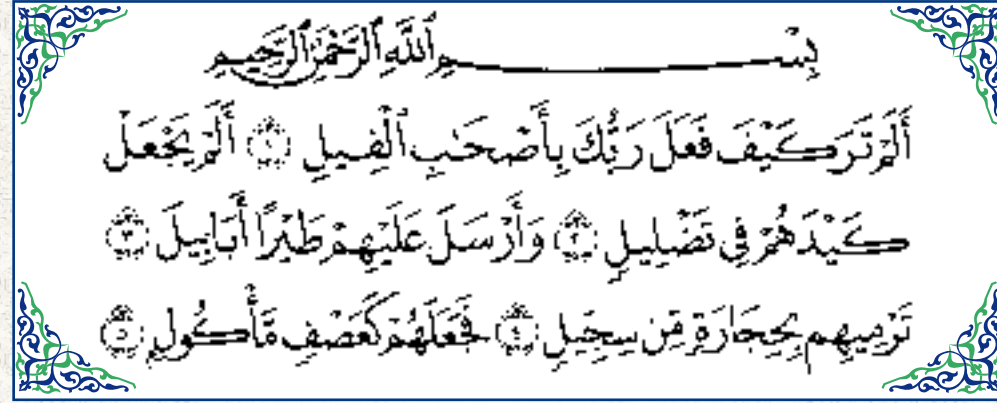 بِسْمِ ٱللَّهِ ٱلرَّحْمَٰنِ ٱلرَّحِيمِ
أَلَمْ تَرَ كَيْفَ فَعَلَ رَبُّكَ بِأَصْحَٰبِ ٱلْفِيلِ ١ أَلَمْ يَجْعَلْ
كَيْدَهُمْ فِى تَضْلِيلٍ ٢ وَأَرْسَلَ عَلَيْهِمْ طَيْرًا أَبَابِيلَ ٣
تَرْمِيهِم بِحِجَارَةٍ مِّن سِجِّيلٍ ٤ فَجَعَلَهُمْ كَعَصْفٍ مَّأْكُولٍ ٥